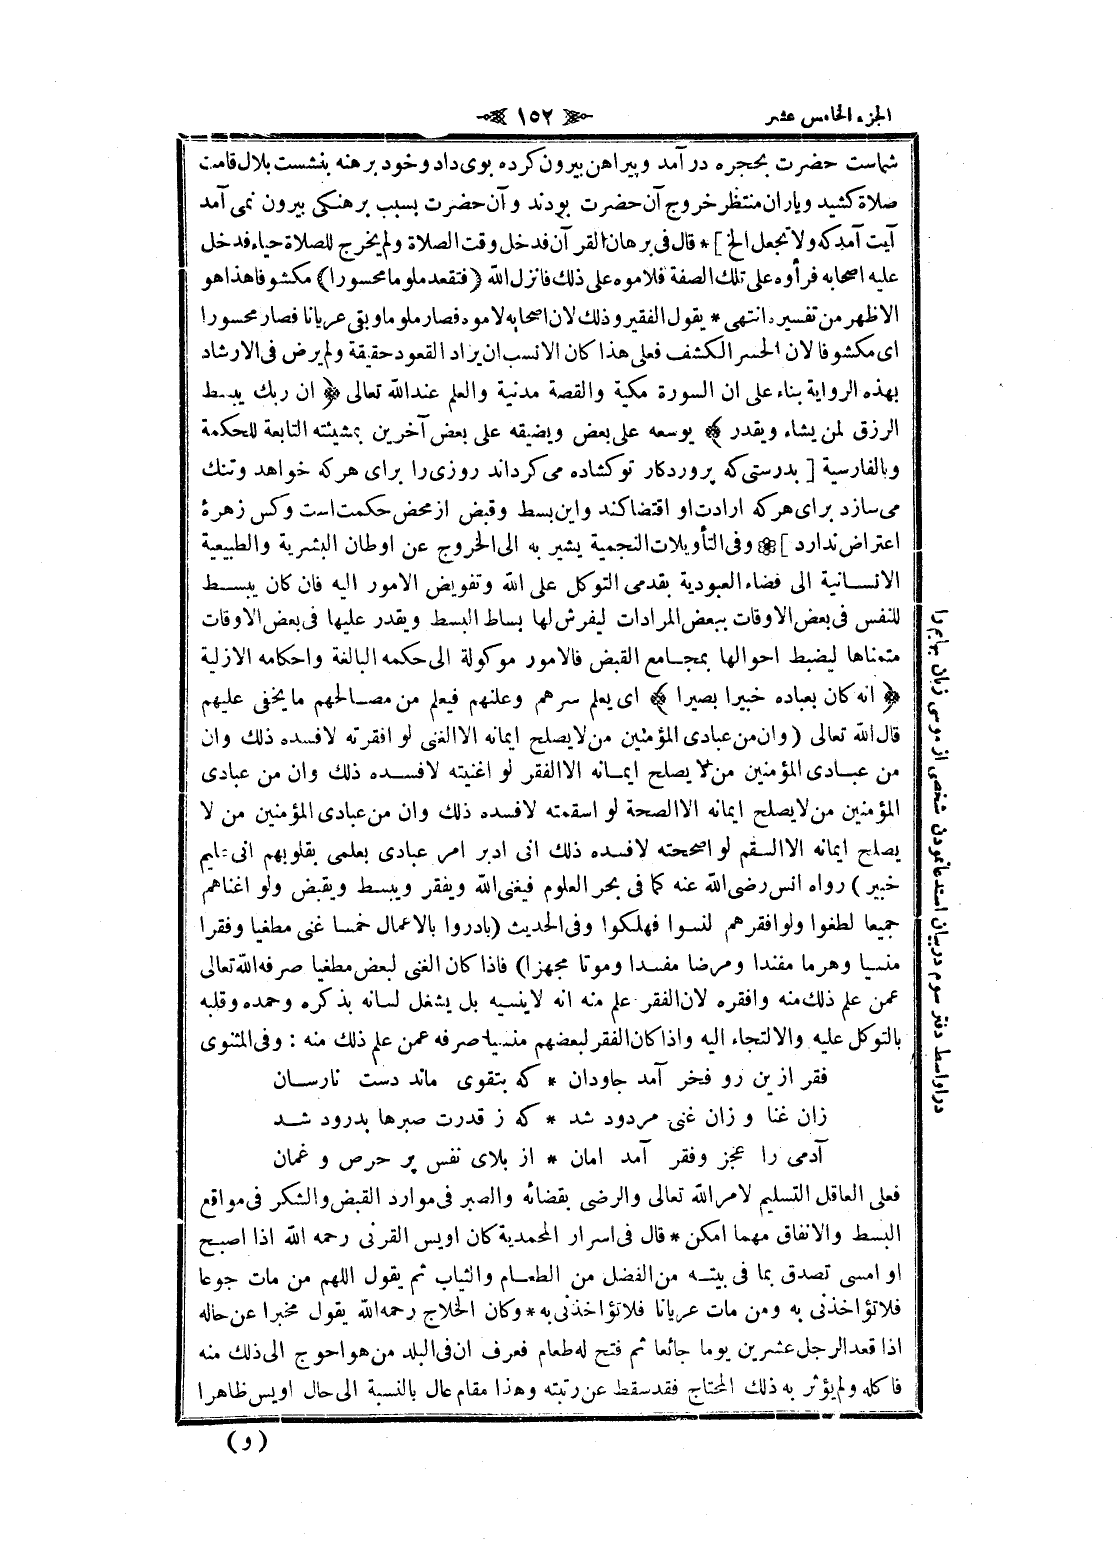 الجزء الخامس عشر
١٥٢
شماست حضرت بحجره در آمد وپيراهن بيرون كرده بوى داد وخود برهنه بنشست بلال قامت
صلاة كشيد وياران منتظر خروج آن حضرت بودند وآن حضرت بسبب برهنكى بيرون نمى آمد
آيت آمد كه ولا تجعل الخ ] * قال فى برهان القرآن فدخل وقت الصلاة ولم يخرج للصلاة حياء فدخل
عليه اصحابه فرأوه على تلك الصفة فلاموه على ذلك فانزل الله (فتقعد ملوما محسورا) مكشوفا هذا هو
الاظهر من تفسيره انتهى * يقول الفقير وذلك لان اصحابه لاموه فصار ملوما وبقى عريانا فصار محسورا
اى مكشوفا لان الحسر الكشف فعلى هذا كان الانسب ان يراد القعود حقيقة ولم يرض فى الارشاد
بهذه الرواية بناء على ان السورة مكية والقصة مدنية والعلم عند الله تعالى ﴿ ان ربك يبسط
الرزق لمن يشاء ويقدر ﴾ يوسعه على بعض ويضيقه على بعض آخرين بمشيئته التابعة للحكمة
وبالفارسية [ بدرستى كه پروردكار تو كشاده مى كرداند روزى را براى هركه خواهد وتنك
مى سازد براى هركه ارادت او اقتضا كند واين بسط وقبض از محض حكمت است وكس زهرۀ
اعتراض ندارد ] ❁ وفى التأويلات النجمية يشير به الى الخروج عن اوطان البشرية والطبيعية
الانسانية الى فضاء العبودية بقدمى التوكل على الله وتفويض الامور اليه فان كان يبسط
للنفس فى بعض الاوقات ببعض المرادات ليفرش لها بساط البسط ويقدر عليها فى بعض الاوقات
متمناها ليضبط احوالها بمجامع القبض فالامور موكولة الى حكمه البالغة واحكامه الازلية
﴿ انه كان بعباده خبيرا بصيرا ﴾ اى يعلم سرهم وعلنهم فيعلم من مصالحهم ما يخفى عليهم
قال الله تعالى (وان من عبادى المؤمنين من لا يصلح ايمانه الا الغنى لو افقرته لافسده ذلك وان
من عبادى المؤمنين من لا يصلح ايمانه الا الفقر لو اغنيته لافسده ذلك وان من عبادى
المؤمنين من لا يصلح ايمانه الا الصحة لو اسقمته لافسده ذلك وان من عبادى المؤمنين من لا
يصلح ايمانه الا السقم لو اصححته لافسده ذلك انى ادبر امر عبادى بعلمى بقلوبهم انى عليم
خبير ) رواه انس رضى الله عنه كما فى بحر العلوم فيغنى الله ويفقر ويبسط ويقبض ولو اغناهم
جميعا لطغوا ولو افقرهم لنسوا فهلكوا وفى الحديث (بادروا بالاعمال خمسا غنى مطغيا وفقرا
منسيا وهرما مفندا ومرضا مفسدا وموتا مجهزا) فاذا كان الغنى لبعض مطغيا صرفه الله تعالى
عمن علم ذلك منه وافقره لان الفقر علم منه انه لا ينسيه بل يشغل لسانه بذكره وحمده وقلبه
بالتوكل عليه والالتجاء اليه واذا كان الفقر لبعضهم منسيا صرفه عمن علم ذلك منه : وفى المثنوى
فقر ازين رو فخر آمد جاودان * كه بتقوى ماند دست نارسان
زان غنا و زان غنى مردود شد * كه ز قدرت صبرها بدرود شد
آدمى را عجز وفقر آمد امان * از بلاى نفس پر حرص و غمان
فعلى العاقل التسليم لامر الله تعالى والرضى بقضائه والصبر فى موارد القبض والشكر فى مواقع
البسط والانفاق مهما امكن * قال فى اسرار المحمدية كان اويس القرنى رحمه الله اذا اصبح
او امسى تصدق بما فى بيته من الفضل من الطعام والثياب ثم يقول اللهم من مات جوعا
فلا تؤاخذنى به ومن مات عريانا فلا تؤاخذنى به * وكان الحلاج رحمه الله يقول مخبرا عن حاله
اذا قعد الرجل عشرين يوما جائعا ثم فتح له طعام فعرف ان فى البلد من هو احوج الى ذلك منه
فاكله ولم يؤثر به ذلك المحتاج فقد سقط عن رتبته وهذا مقام عال بالنسبة الى حال اويس ظاهرا
(و)
در اواسط دفتر سوم دربيان استدعا نمودن شخصى از موسى زبان بهايم را